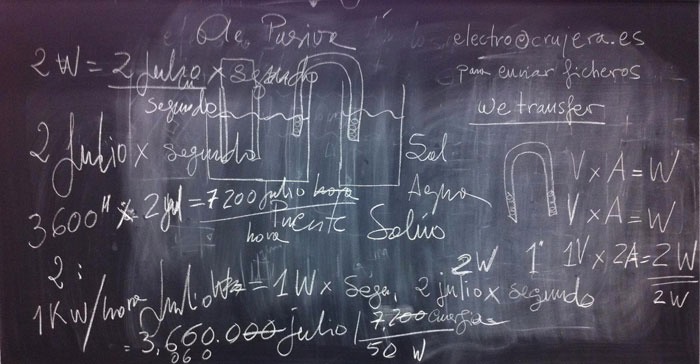 Ola Pasiva
electro@crujera.es
para enviar ficheros
we transfer
2 W = 2 julio x segundo
segundo
2 julio x segundo
Sal
Agua
V x A = W
V x A = W
3600 x 2 = 7200 julio hora
hora
Puente Salino
2W 1" 1V x 2A = 2W
2W
2:
1 KW/hora Julio = 1W x Segu, 2 julio x segundo
= 3,660.000 julio / 7,200 energía
060
50 W